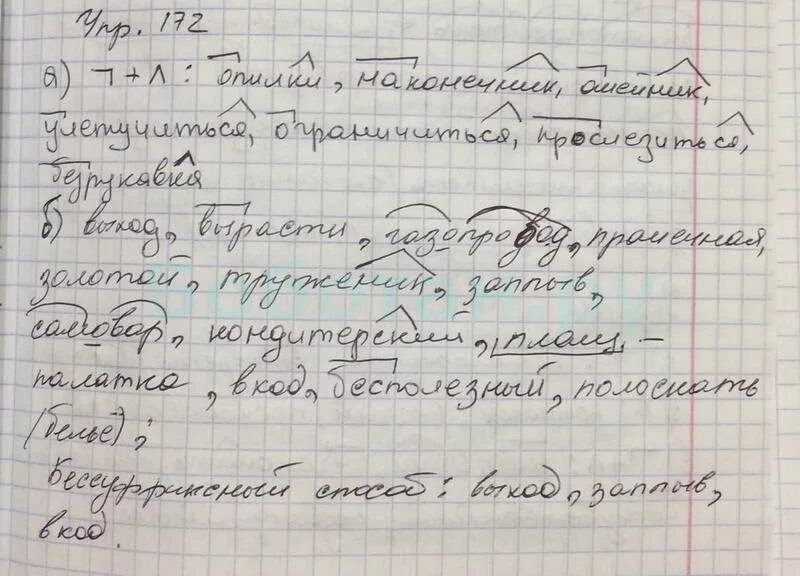 Упр. 172
а) ¬ + ^ : опилки, наконечник, ошейник,
улетучиться, ограничиться, прослезиться,
безрукавка
б) выход, вырасти, газопровод, прачечная,
золотой, труженик, заплыв,
самовар, кондитерский, плащ-
палатка, вход, бесполезный, полоскать
(бельё);
Бессуффиксный способ: выход, заплыв,
вход.